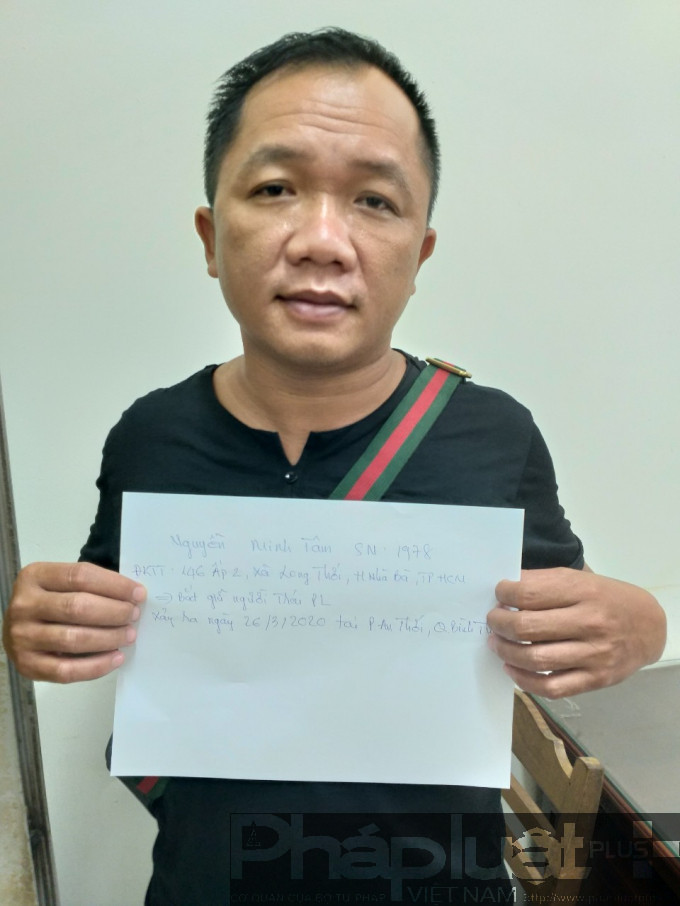 Nguyễn Minh Tâm SN: 1978
ĐKTT: 146 Ấp 2, Xã Long Thới, H Nhà Bè, TP HCM
=> Bắt giữ người Thái PL
Xảy ra ngày 26/3/2020 tại P. An Thới, Q. Bình T
Phápluật PLUS
CƠ QUAN CỦA BỘ TƯ PHÁP VIỆT NAM